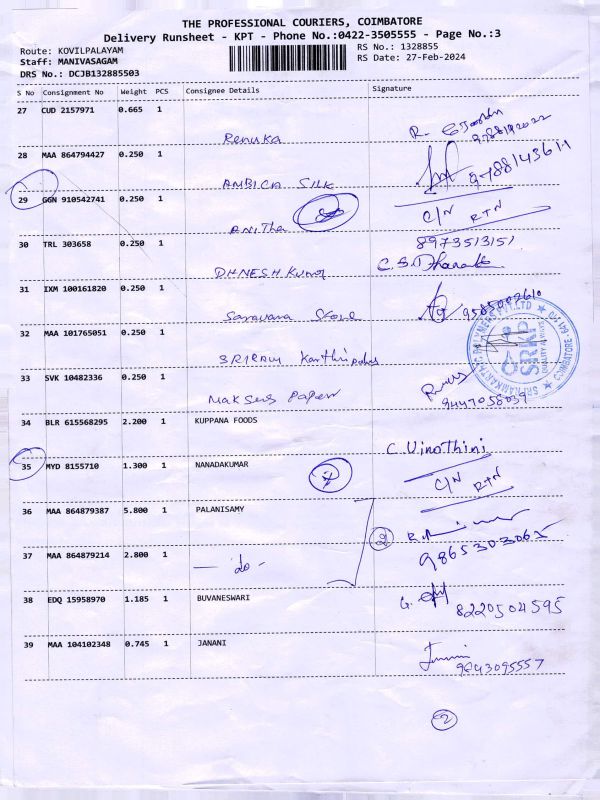 THE PROFESSIONAL COURIERS, COIMBATORE
Delivery Runsheet - KPT - Phone No.:0422-3505555 - Page No.:3
Route: KOVILPALAYAM
RS No.: 1328855
Staff: MANIVASAGAM
RS Date: 27-Feb-2024
DRS No.: DCJB132885503
S No Consignment No Weight PCS Consignee Details Signature
27 CUD 2157971 0.665 1
Renuka R.
28 MAA 864794427 0.250 1
AMBICA SILK
29 GGN 910542741 0.250 1 C/N RTN
Anitha
30 TRL 303658 0.250 1 8973513151
DHNESH Kumar C.S.Dharak
31 IXM 100161820 0.250 1
Saravana Store
32 MAA 101765051 0.250 1
SRIRAM Karthi
33 SVK 10482336 0.250 1
Maksens Paper 9447058039
34 BLR 615568295 2.200 1 KUPPANA FOODS
C. Vinothini
35 MYD 8155710 1.300 1 NANADAKUMAR C/N RTN
36 MAA 864879387 5.800 1 PALANISAMY
37 MAA 864879214 2.800 1 - do - 22
38 EDQ 15958970 1.185 1 BUVANESWARI G. 8220504595
39 MAA 104102348 0.745 1 JANANI
9643095557
SRI RAMKARTHIC POLYMERS PVT. LTD
SRKP
QUALITY ALWAYS
COIMBATORE
2